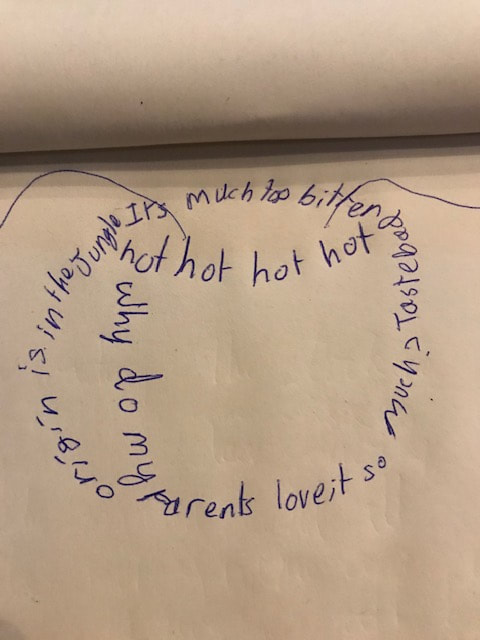 Its much too bitter
hot hot hot hot
origin is in the Jungle
why do my
parents love it so
much? Tastebad